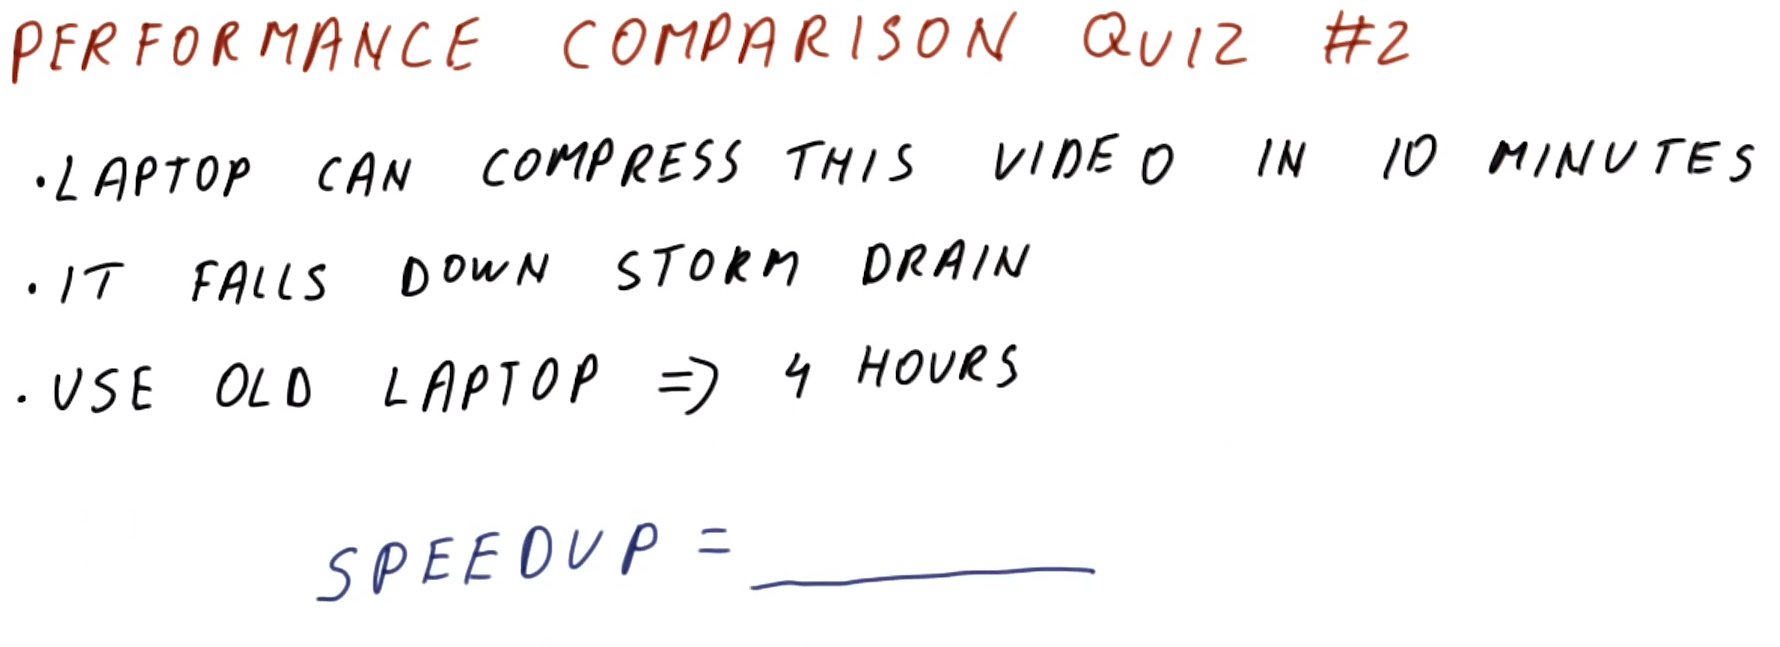 PERFORMANCE COMPARISON QUIZ #2
• LAPTOP CAN COMPRESS THIS VIDEO IN 10 MINUTES
• IT FALLS DOWN STORM DRAIN
• USE OLD LAPTOP => 4 HOURS
SPEEDUP = ________